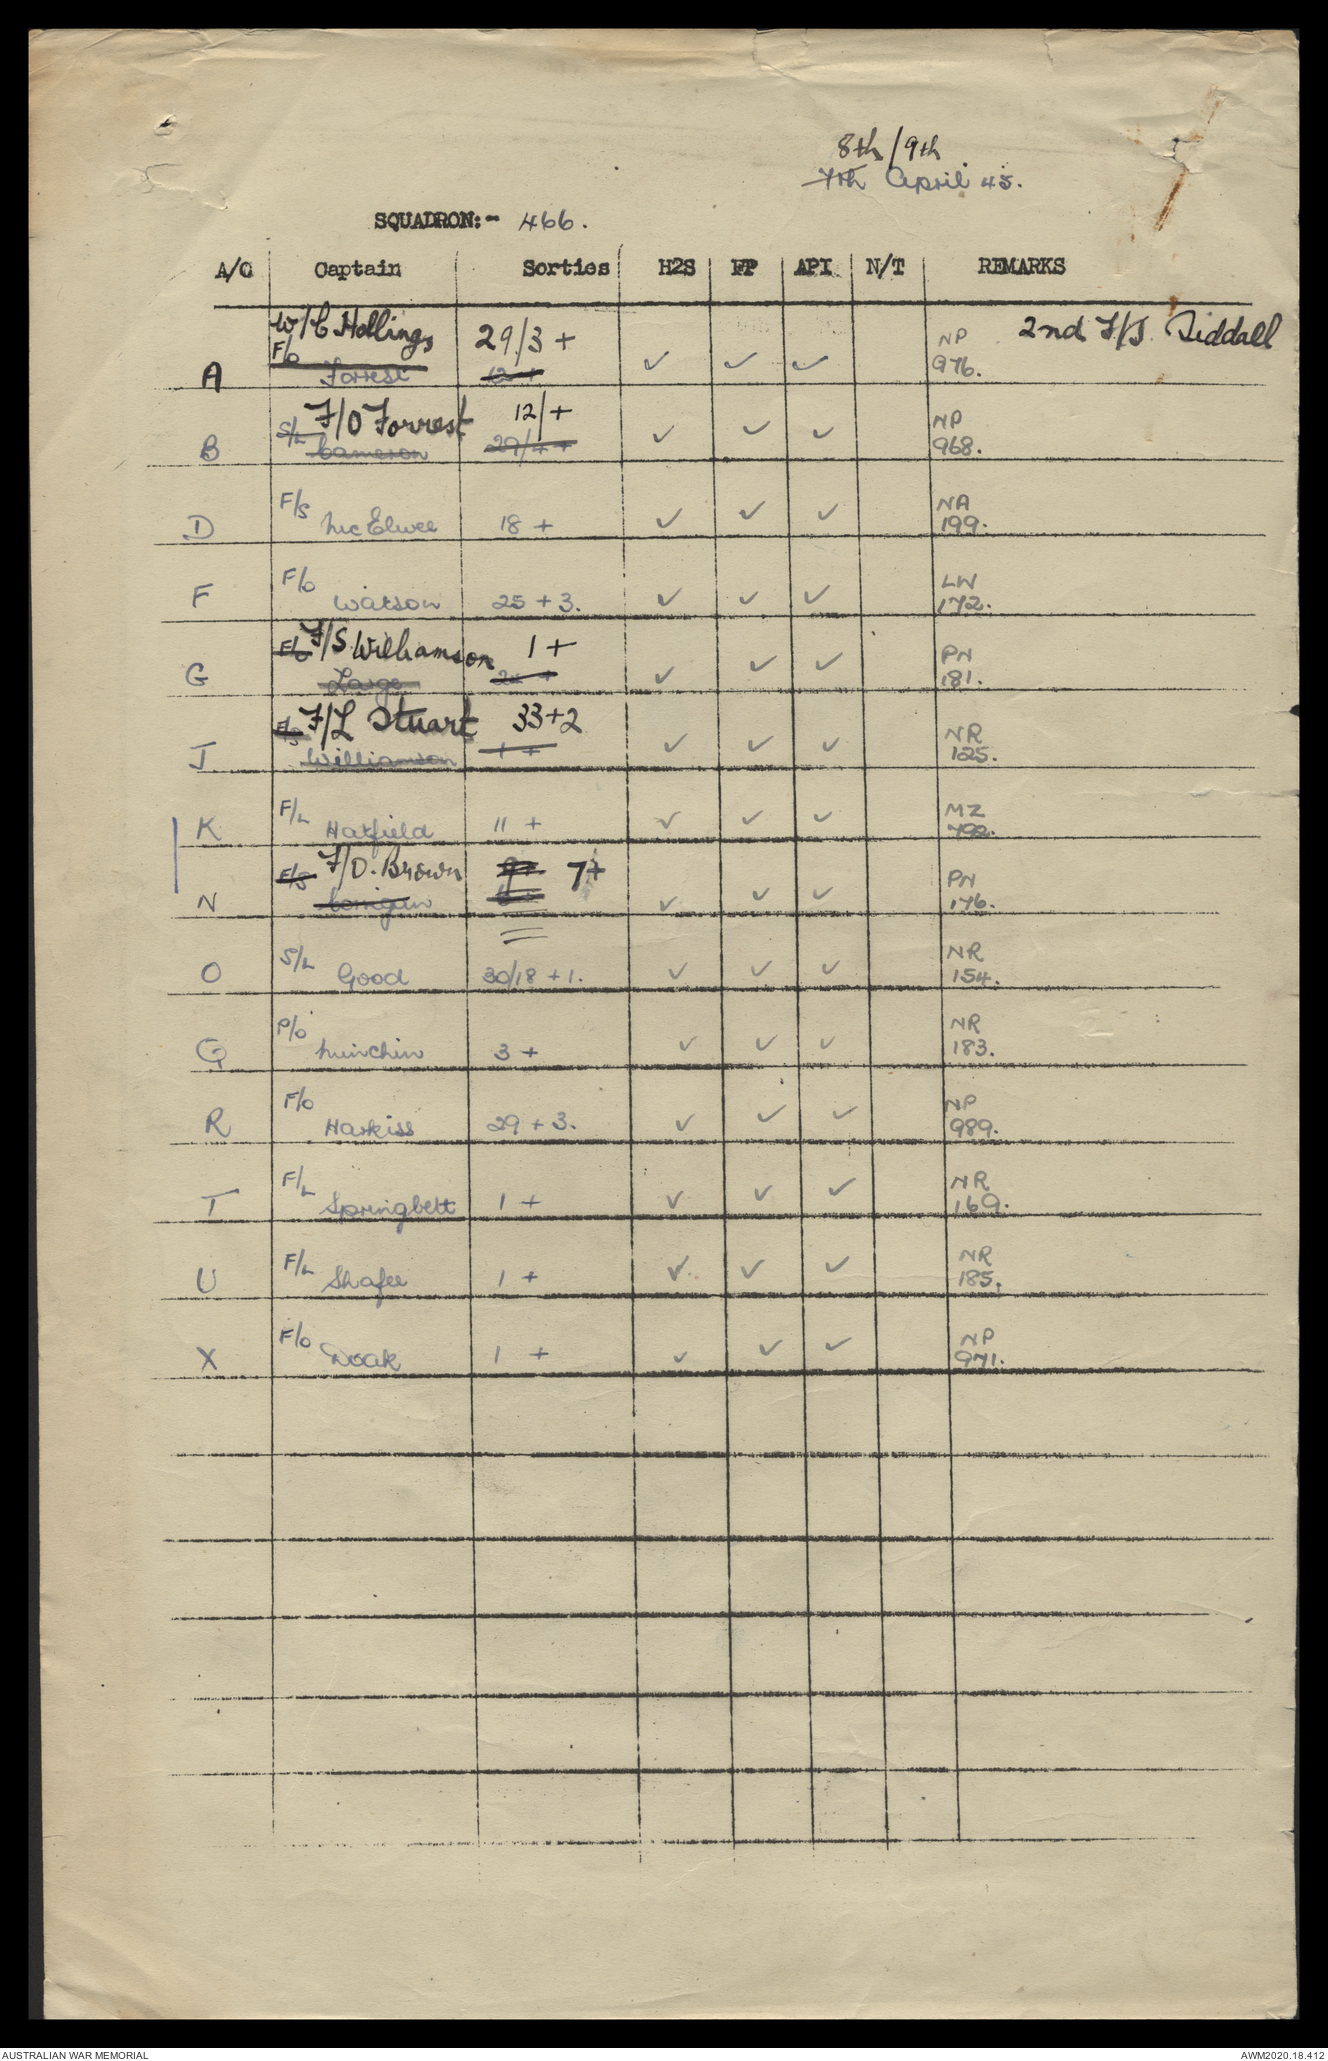 8th/9th
7th April 45.
SQUADRON:- 466.
A/C Captain Sorties H2S FP API N/T REMARKS
W/C Hollings 29/3 + 2nd F/S. Siddall
F/O NP
A Forrest 12 + ✓ ✓ ✓ 976.
F/O Forrest 12/+ NP
S/L
B Cameron 29/4 + ✓ ✓ ✓ 968.
F/S NA
D McElwee 18 + ✓ ✓ ✓ 199.
F/O LW
F Watson 25 + 3. ✓ ✓ ✓ 172.
F/O F/S Williamson 1 + PN
G Large + ✓ ✓ ✓ 181.
F/S F/L Stuart 33+2 NR
J Williamson 1 + ✓ ✓ ✓ 125.
F/L MZ
K Hatfield 11 + ✓ ✓ ✓ 792.
F/S F/O. Brown 9+ 7+ PN
N Corrigan ✓ ✓ ✓ 176.
S/L NR
O Good 30/18 + 1. ✓ ✓ ✓ 154.
P/O NR
Q Minchin 3 + ✓ ✓ ✓ 183.
F/O NP
R Harkiss 29 + 3. ✓ ✓ ✓ 989.
F/L NR
T Springbett 1 + ✓ ✓ ✓ 169.
F/L NR
U Shafee 1 + ✓ ✓ ✓ 185.
F/O NP
X Doak 1 + ✓ ✓ ✓ 971.
AUSTRALIAN WAR MEMORIAL AWM2020.18.412